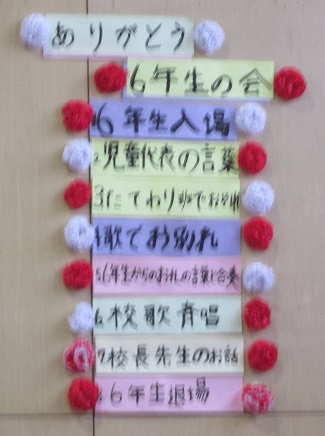 ありがとう
6年生の会
6年生入場
2児童代表の言葉
3たてわり班でお別れ
4歌でお別れ
5.6年生からのお礼の言葉と合奏
6.校歌斉唱
7.校長先生のお話
8 6年生退場